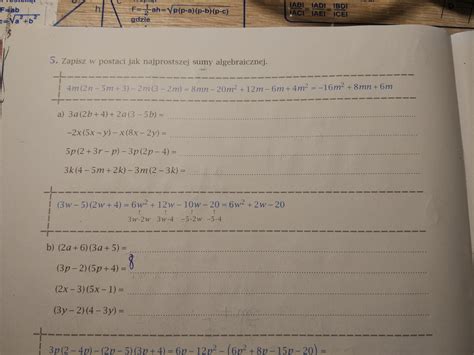 F=ab
F=½·ah=√p(p-a)(p-b)(p-c)
gdzie
|AD| |AE| |BD|
|AC| |AF| |CE|
c=√a²+b²
5. Zapisz w postaci jak najprostszej sumy algebraicznej.
4m(2n − 5m + 3) − 2m(3 − 2m) = 8mn − 20m² + 12m − 6m + 4m² = −16m² + 8mn + 6m
a) 3a(2b + 4) + 2a(3 − 5b) =
−2x(5x − y) − x(8x − 2y) =
5p(2 + 3r − p) − 3p(2p − 4) =
3k(4 − 5m + 2k) − 3m(2 − 3k) =
(3w − 5)(2w + 4) = 6w² + 12w − 10w − 20 = 6w² + 2w − 20
3w·2w 3w·4 −5·2w −5·4
b) (2a + 6)(3a + 5) =
(3p − 2)(5p + 4) = 8
(2x − 3)(5x − 1) =
(3y − 2)(4 − 3y) =
3p(2 − 4p) − (2p − 5)(3p + 4) = 6p − 12p² − (6p² + 8p − 15p − 20) =